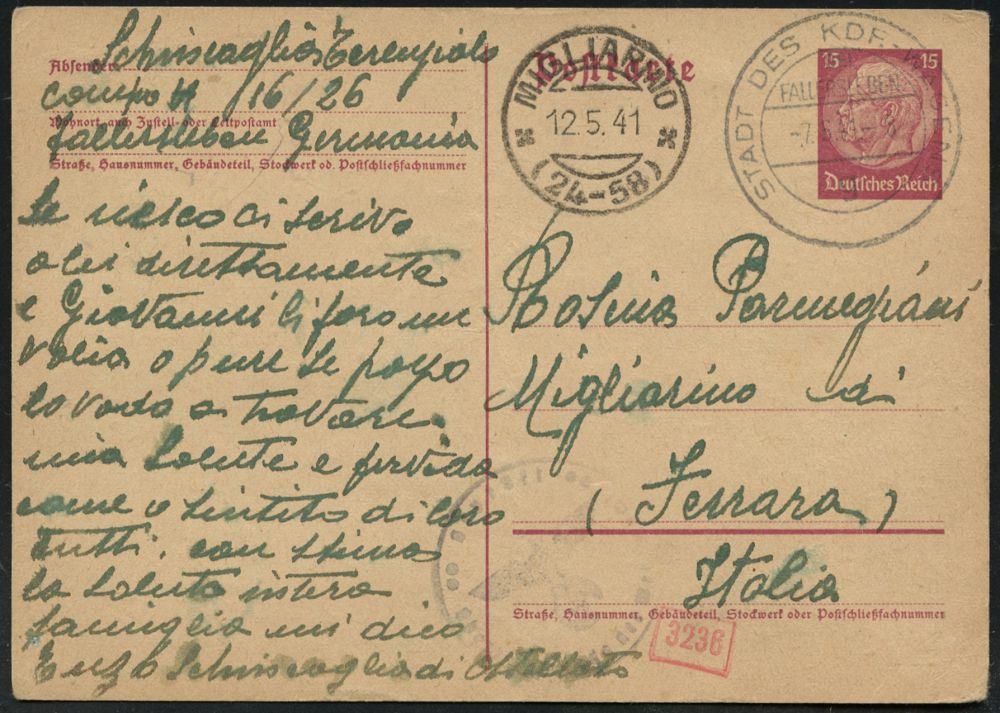 Absender:
Schiscaglia Terenziolo
campo H 16/26
Wohnort, auch Zustell- oder Leitpostamt
fallersleben Germania
Straße, Hausnummer, Gebäudeteil, Stockwerk od. Postschließfachnummer
Se riesco ci scrivo
a lei direttamente
e Giovanni li faro un
valia o pure se posso
lo vado a trovare.
una Salute e fervida
come o sentito di loro
tutti. con stima
la saluto intera
famiglia mi dico
Enzo Schiscaglia di Ostellato
Postkarte
MIGLIARINO
12.5.41
(24-58)
STADT DES KDF-WAGENS
FALLERSLEBEN
15 15
Deutsches Reich
Rosina Parmegiani
Migliarino di
(Ferrara)
Italia
Straße, Hausnummer, Gebäudeteil, Stockwerk oder Postschließfachnummer
3236